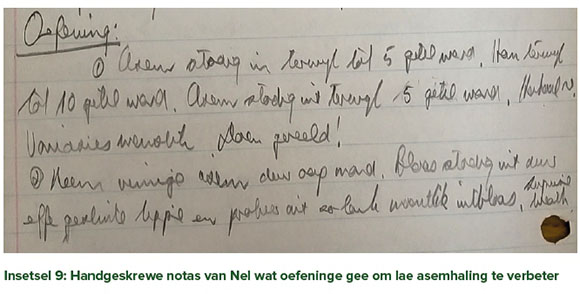 Oefening:
① Asem stadig in terwyl tot 5 getel word. Hou terwyl
tot 10 getel word. Asem stadig uit terwyl 5 getel word. Herhaal
Variasies moontlik. Doen gereeld!
② Neem vinnige asem deur oop mond. Blaas stadig uit deur
effe getuite lippie en probeer uit so lank moontlik uitblaas.
Insetsel 9: Handgeskrewe notas van Nel wat oefeninge gee om lae asemhaling te verbeter